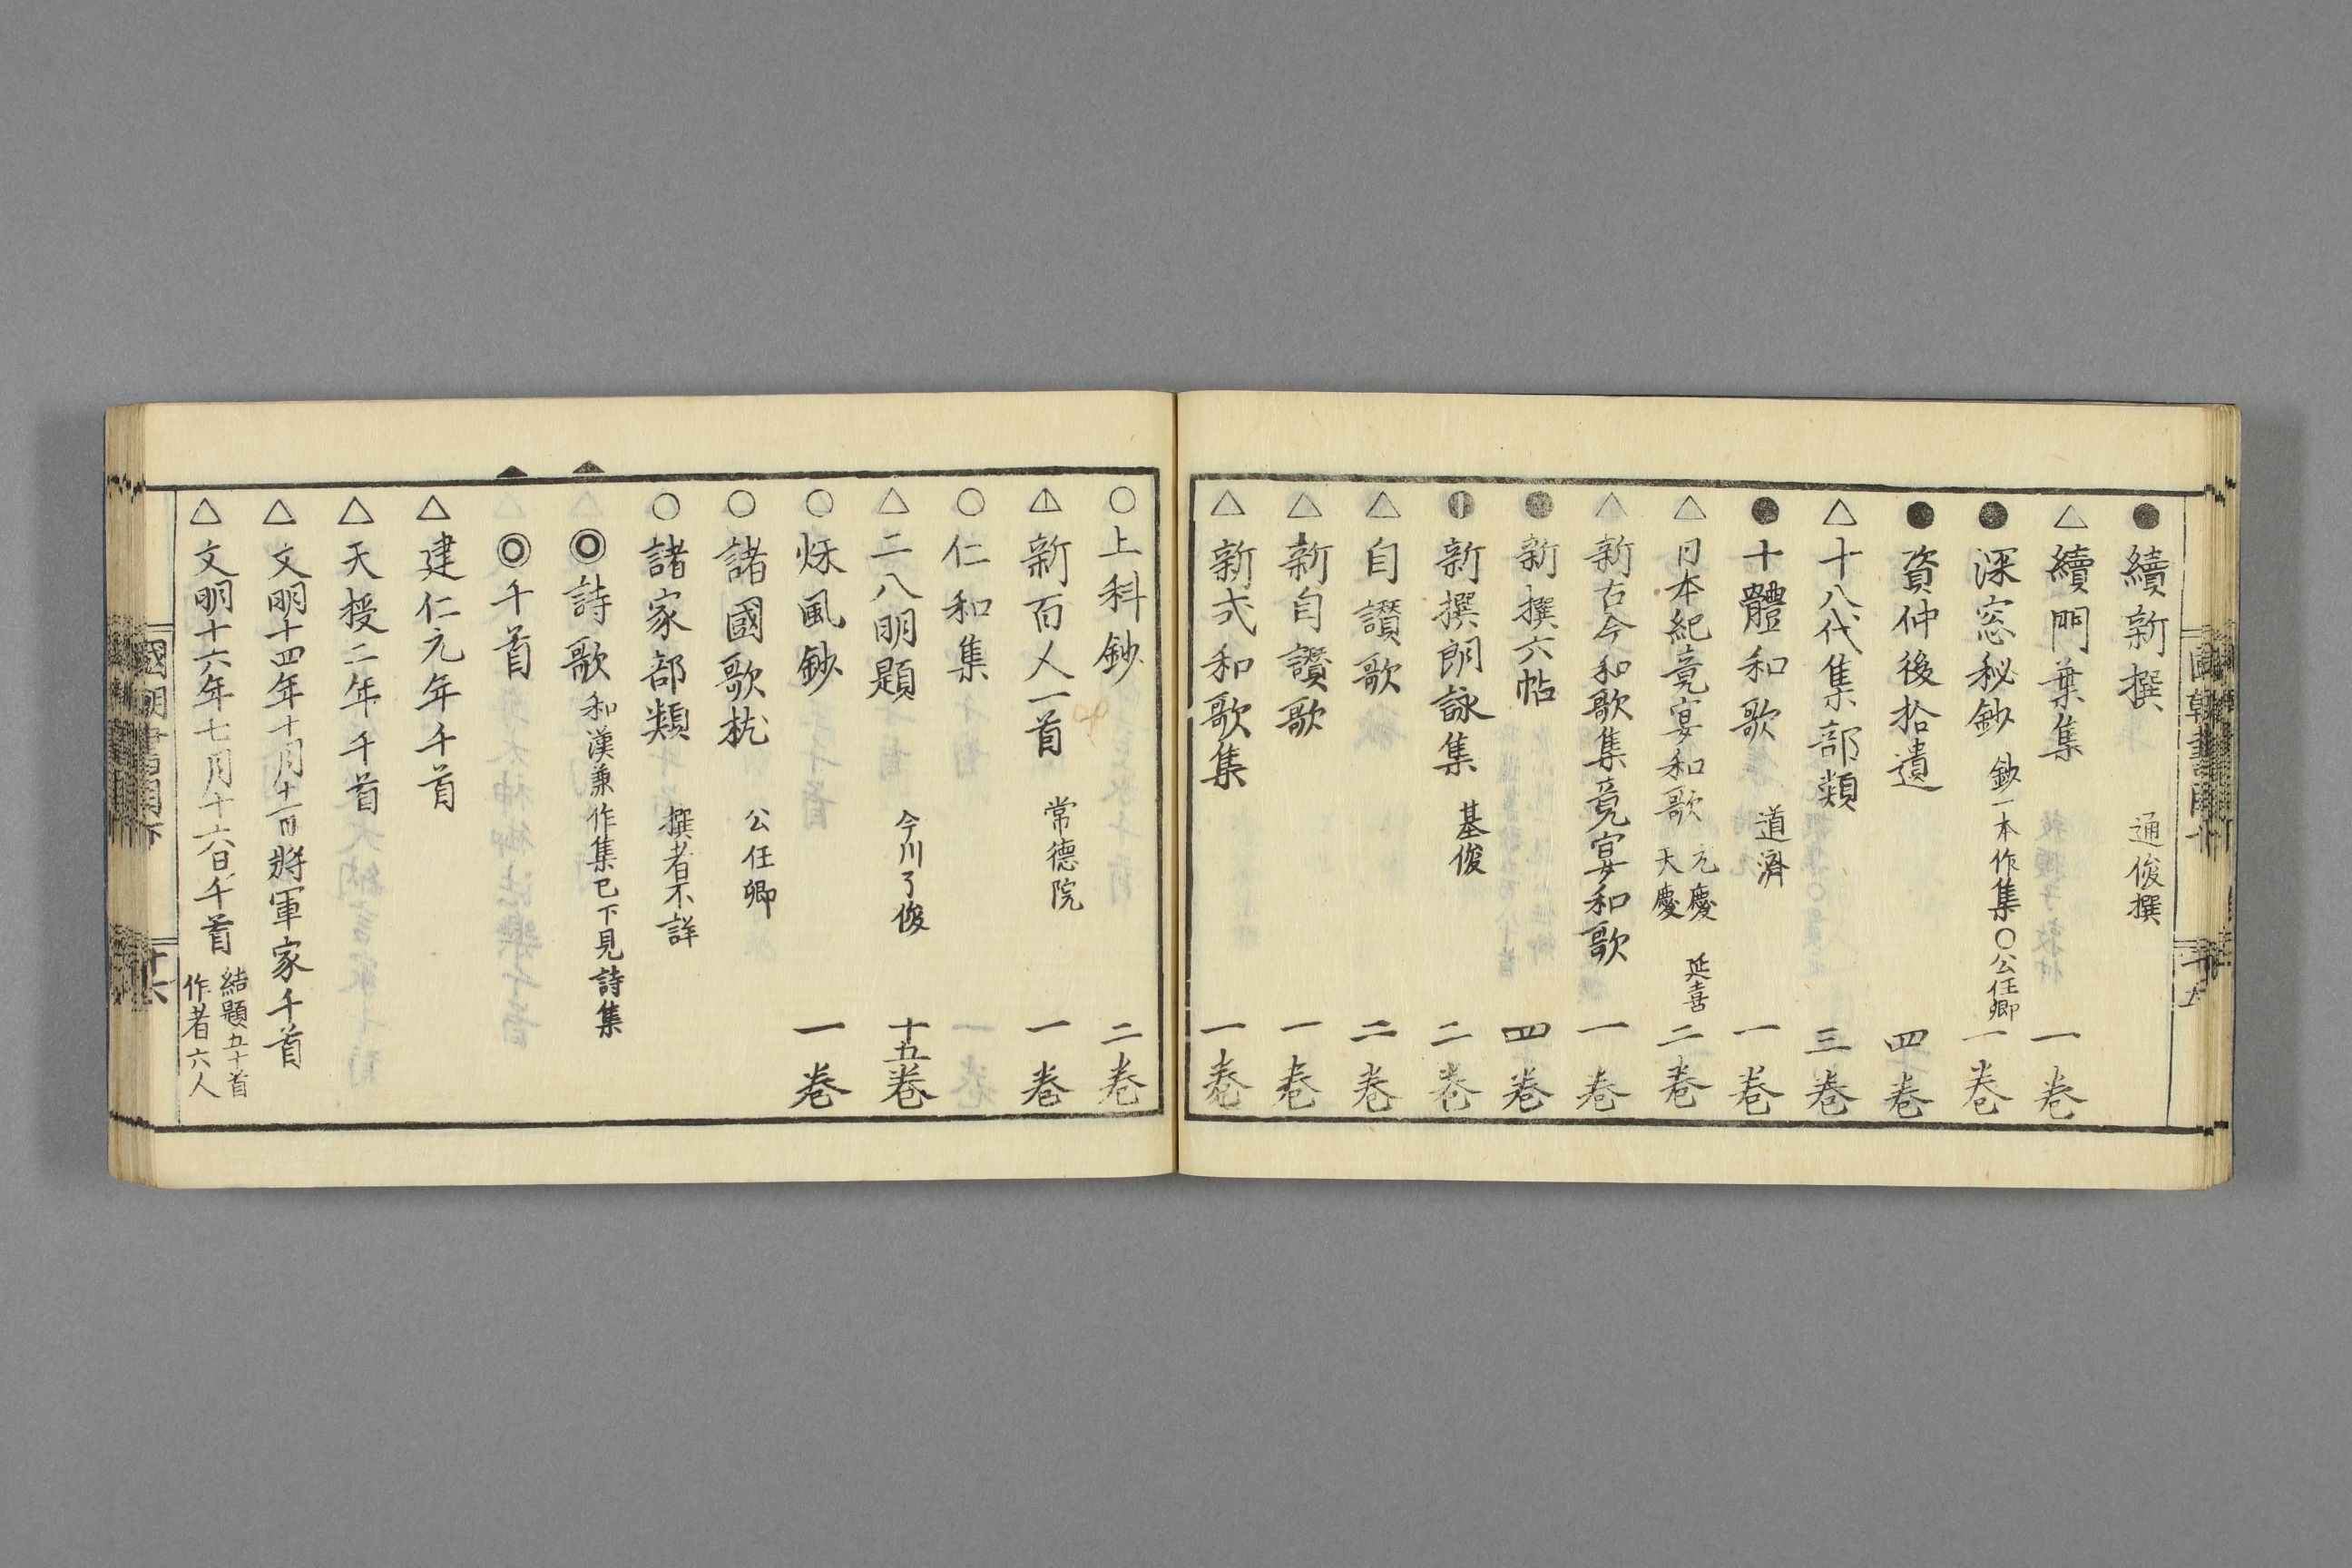 ●續新撰 通俊撰
△續門葉集 一卷
●深窓秘鈔 鈔一本作集〇公任卿 一卷
●資仲後拾遺 四卷
△十八代集部類 三卷
●十體和歌 道濟 一卷
△日本紀竟宴和歌 元慶 天慶 延喜 二卷
△新古今和歌集竟宴和歌 一卷
●新撰六帖 四卷
新撰朗詠集 基俊 二卷
△自讃歌 二卷
△新自讃歌 一卷
△新式和歌集 一卷
○上科鈔 二卷
新百人一首 常德院 一卷
○仁和集
△二八明題 今川了俊 十五卷
○烁風鈔 一卷
○諸國歌枕 公任卿
○諸家部類 撰者不詳
◎詩歌 和漢兼作集已下見詩集
◎千首
△建仁元年千首
△天授二年千首
△文明十四年十月 將軍家千首
△文明十六年七月十六日千首 結題五十首 作者六人